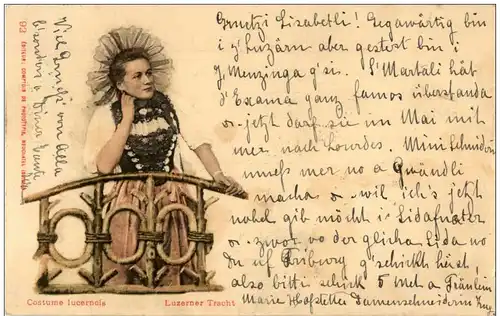 Gruetzi Lisabetli! Gegawärtig bin
i z' Luzärn aber gestert bin i
z' Menzinga g'si. S'Martali hät
d'Exama ganz famos überstanda
&
jetzt darf sie im Mai mit
mer nach Lourdes. Mini Schnideri
muess mer no a Gwändli
macha &
wil ich's jetzt
nobel gib möcht i
&
zwor vo der glicha Sida wo
du uf Friburg g'schickt hesch
also bitti schick 5 Met a Fräulein
Marie Hofstetter Damenschneiderin Zug.
Viel Grüessli von alla
bsonders a Dina Tante
93
Costume lucernois
Luzerner Tracht